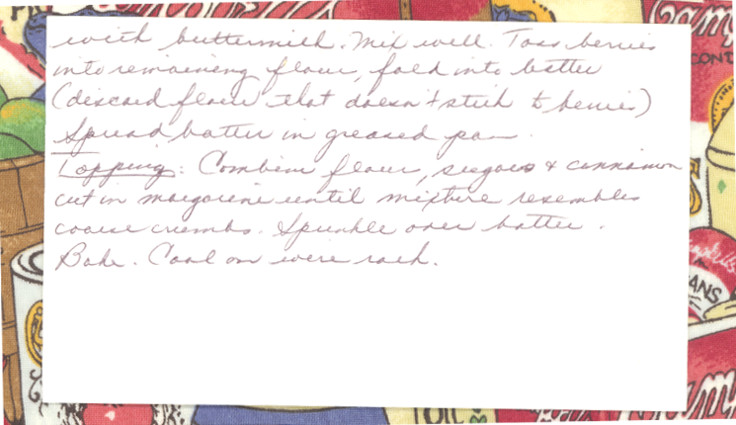 with buttermilk. Mix well. Toss berries
into remaining flour, fold into batter
(discard flour that doesn't stick to berries)
Spread batter in greased pan.
Topping: Combine flour, sugars & cinnamon
cut in margarine until mixture resembles
coarse crumbs. Sprinkle over batter.
Bake. Cool on wire rack.
CONT
ANS
OIL